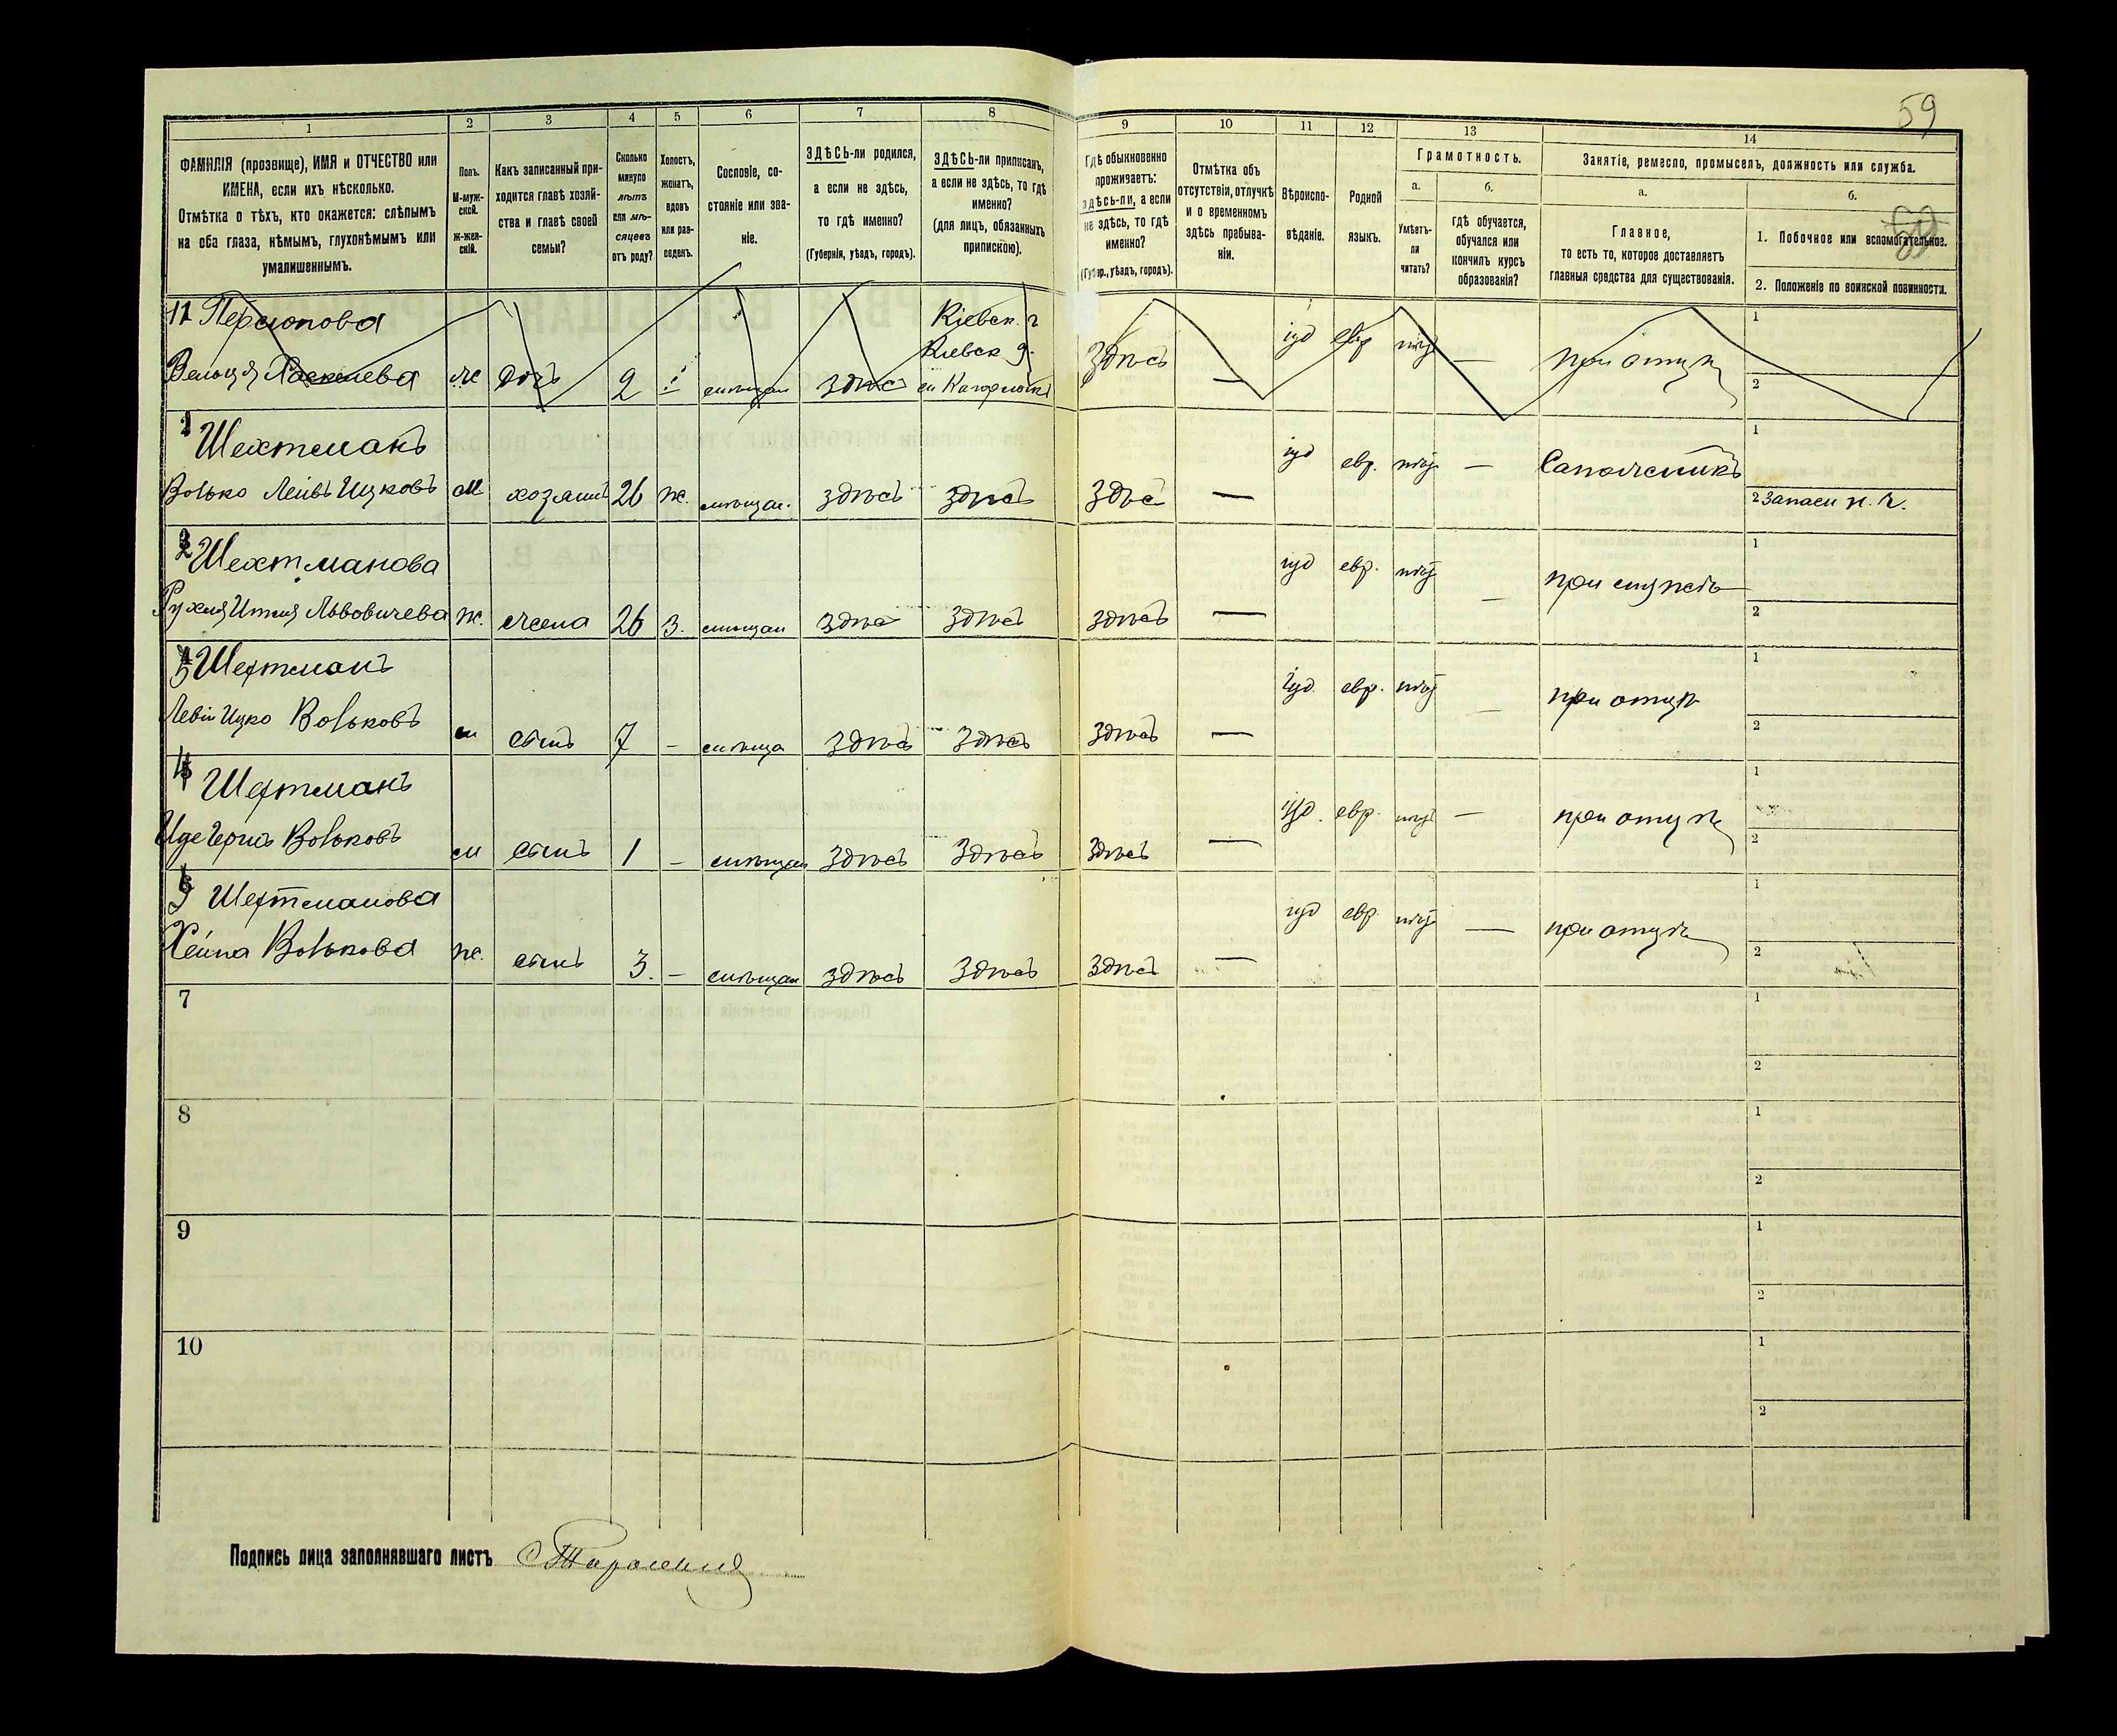 59
59
1 2 3 4 5 6 7 8 9 10 11 12 13 14
ФАМИЛІЯ (прозвище), ИМЯ и ОТЧЕСТВО или
ИМЕНА, если ихъ нѣсколько.
Отмѣтка о тѣхъ, кто окажется: слѣпымъ
на оба глаза, нѣмымъ, глухонѣмымъ или
умалишеннымъ.
Полъ.
М-муж-
ской.
Ж-жен-
скій.
Какъ записанный при-
ходится главѣ хозяй-
ства и главѣ своей
семьи?
Сколько
минуло
лѣтъ
или мѣ-
сяцевъ
отъ роду?
Холостъ,
женатъ,
вдовъ
или раз-
веденъ.
Сословіе, со-
стояніе или зва-
ніе.
ЗДѢСЬ-ли родился,
а если не здѣсь,
то гдѣ именно?
(Губернія, уѣздъ, городъ).
ЗДѢСЬ-ли приписанъ,
а если не здѣсь, то гдѣ
именно?
(для лицъ, обязанныхъ
припискою).
Гдѣ обыкновенно
проживаетъ:
здѣсь-ли, а если
не здѣсь, то гдѣ
именно?
(Губер., уѣздъ, городъ).
Отмѣтка объ
отсутствіи, отлучкѣ
и о временномъ
здѣсь пребыва-
ніи.
Вѣроиспо-
вѣданіе.
Родной
языкъ.
Грамотность.
а.
Умѣетъ-
ли
читать?
б.
гдѣ обучается,
обучался или
кончилъ курсъ
образованія?
Занятіе, ремесло, промыселъ, должность или служба.
а.
Главное,
то есть то, которое доставляетъ
главныя средства для существованія.
б.
1. Побочное или вспомогательное.
2. Положеніе по воинской повинности.
дочь 2 Кіевск. г здѣсь іуд евр 1
2
1 Шехтманъ
Волько Лейвъ Ицковъ м хозяинъ 26 ж. мѣщан. здѣсь здѣсь здѣсь — іуд евр. — Сапожникъ 1
2 Запасн
Шехтманова
Львовичева ж. жена 26 з. мѣщан здѣсь здѣсь здѣсь — іуд евр. — при мужѣ 1
2
Шехтманъ
Ицко Вольковъ м сынъ 7 — мѣща здѣсь здѣсь здѣсь — іуд. евр. — при отцѣ 1
2
Шехтманъ
Вольковъ м сынъ 1 — мѣщан здѣсь здѣсь здѣсь — іуд. евр. — при отцѣ 1
2
Шехтманова
Волькова ж. сынъ 3. — мѣщан здѣсь здѣсь здѣсь — іуд евр. — при отцѣ 1
2
7 1
2
8 1
2
9 1
2
10 1
2
Подпись лица заполнявшаго листъ